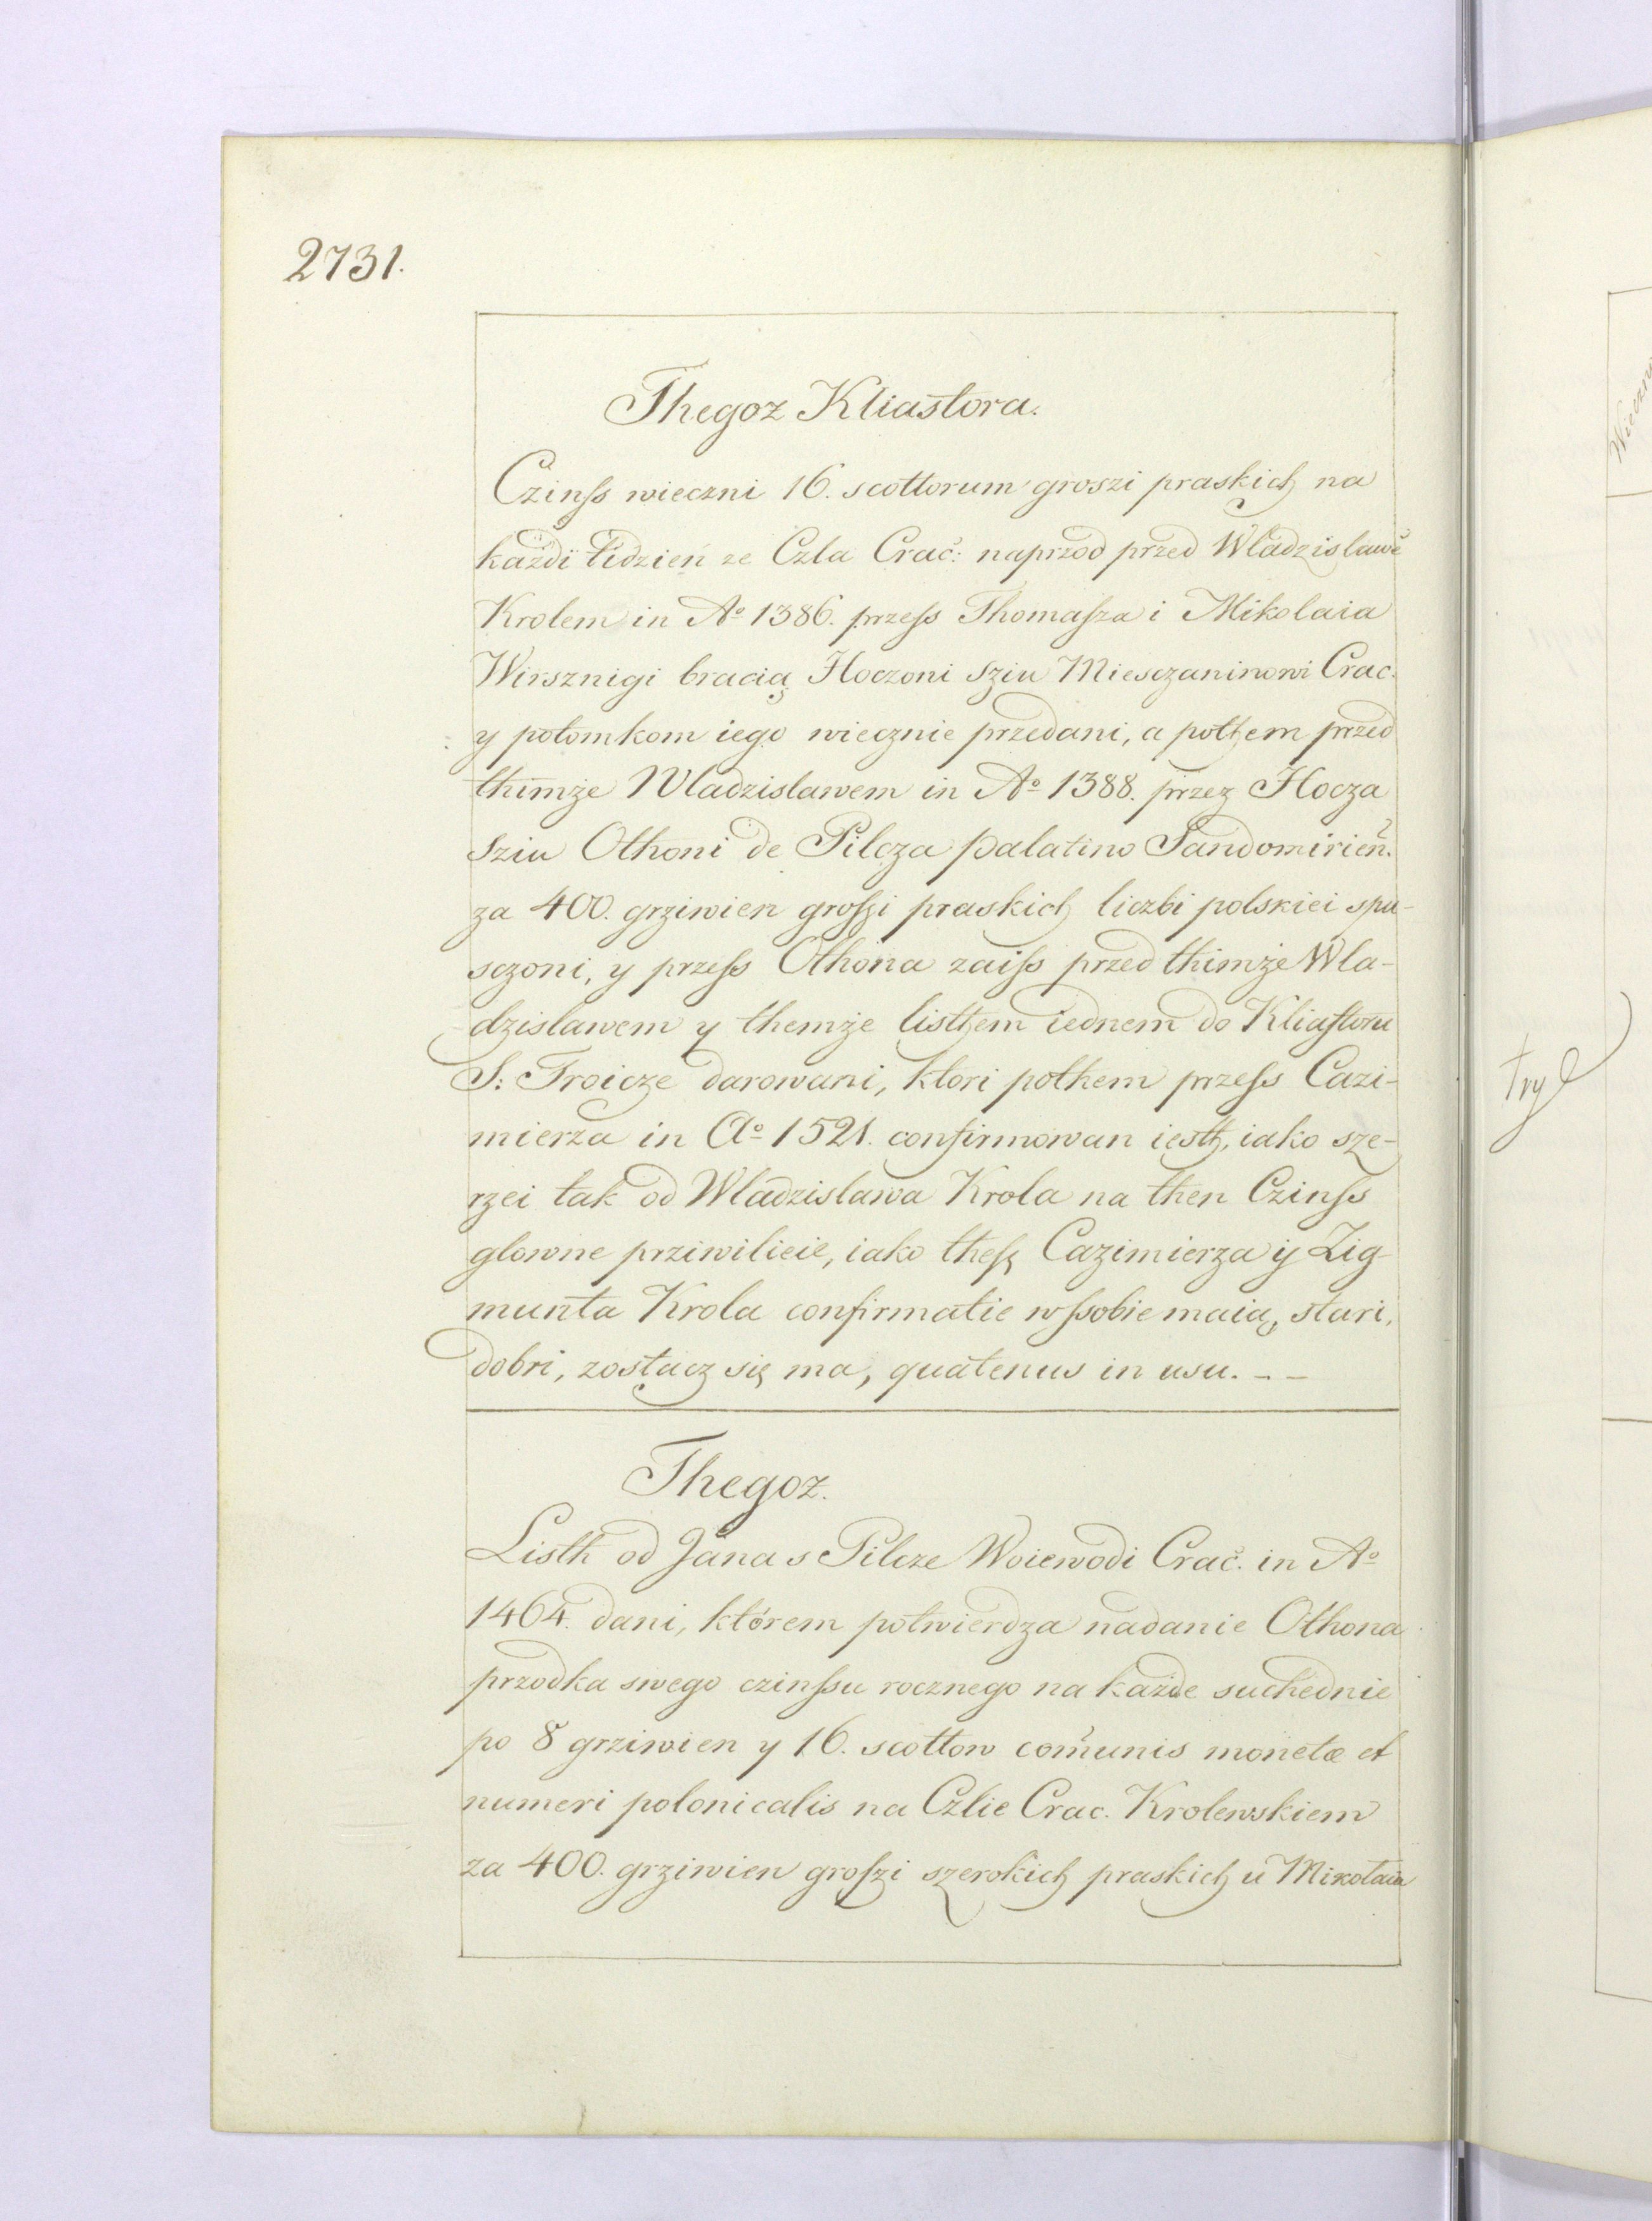 2731.
Thegoz Kliastora.
Czinss wieczni 16. scottorum groszi praskich na
każdi tidzień ze Czla Crac: naprzod przed Wladzislawē
Krolem in Aº 1386. przess Thomasza i Mikolaia
Wirsznigi bracią Hoczoni Sziu Miesczaninowi Crac.
y potomkom iego wiecznie przedani, a pothem przed
thimże Wladzislawem in Aº 1388. przez Hocza
Sziu Othoni de Pilcza palatino Sandomirień.
za 400. grziwien groszi praskich liczbi polskiei spu-
sczoni, y przess Othona zaiss przed thimże Wla-
dzislawem y themże listhem iednem do Kliastoru
S: Troicze darowani, ktori pothem przess Cazi-
mierza in Aº 1521. confirmowan iesth, iako sze-
rzei tak od Wladzislawa Krola na then Czinss
glowne prziwilieie, iako thesz Cazimierza ij Zig-
munta Krola confirmatie wssobie maią, stari,
dobri, zostacz się ma, quatenus in usu. - -
Thegoz.
Listh od Jana s Pilcze Woiewodi Crac. in Aº
1464. dani, którem potwierdza nadanie Othona
przodka swego czinssu rocznego na każde suchednie
po 8 grziwien y 16. scottow com̃unis monetæ et
numeri polonicalis na Czlie Crac. Krolewskiem
za 400. grziwien groszi szerokich praskich u Mikołaia